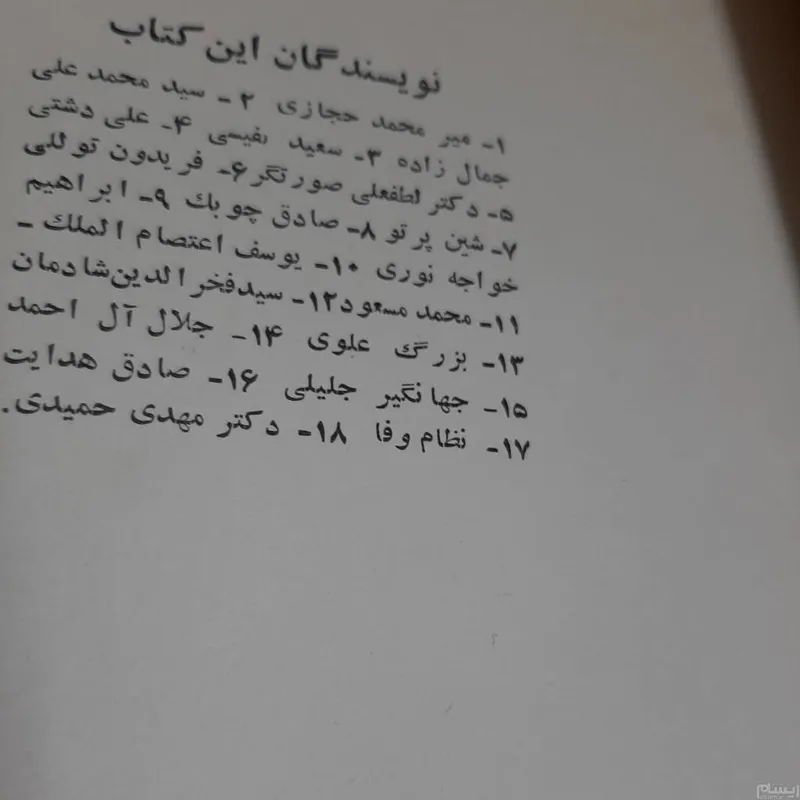 نویسندگان این کتاب
۱- میر محمد حجازی ۲- سید محمد علی
جمال زاده ۳- سعید نفیسی ۴- علی دشتی
۵- دکتر لطفعلی صورتگر ۶- فریدون توللی
۷- شین پرتو ۸- صادق چوبك ۹- ابراهیم
خواجه نوری ۱۰- یوسف اعتصام الملك -
۱۱- محمد مسعود ۱۲- سیدفخرالدین‌شادمان
۱۳- بزرگ علوی ۱۴- جلال آل احمد
۱۵- جهانگیر جلیلی ۱۶- صادق هدایت
۱۷- نظام وفا ۱۸- دکتر مهدی حمیدی.
ایسام